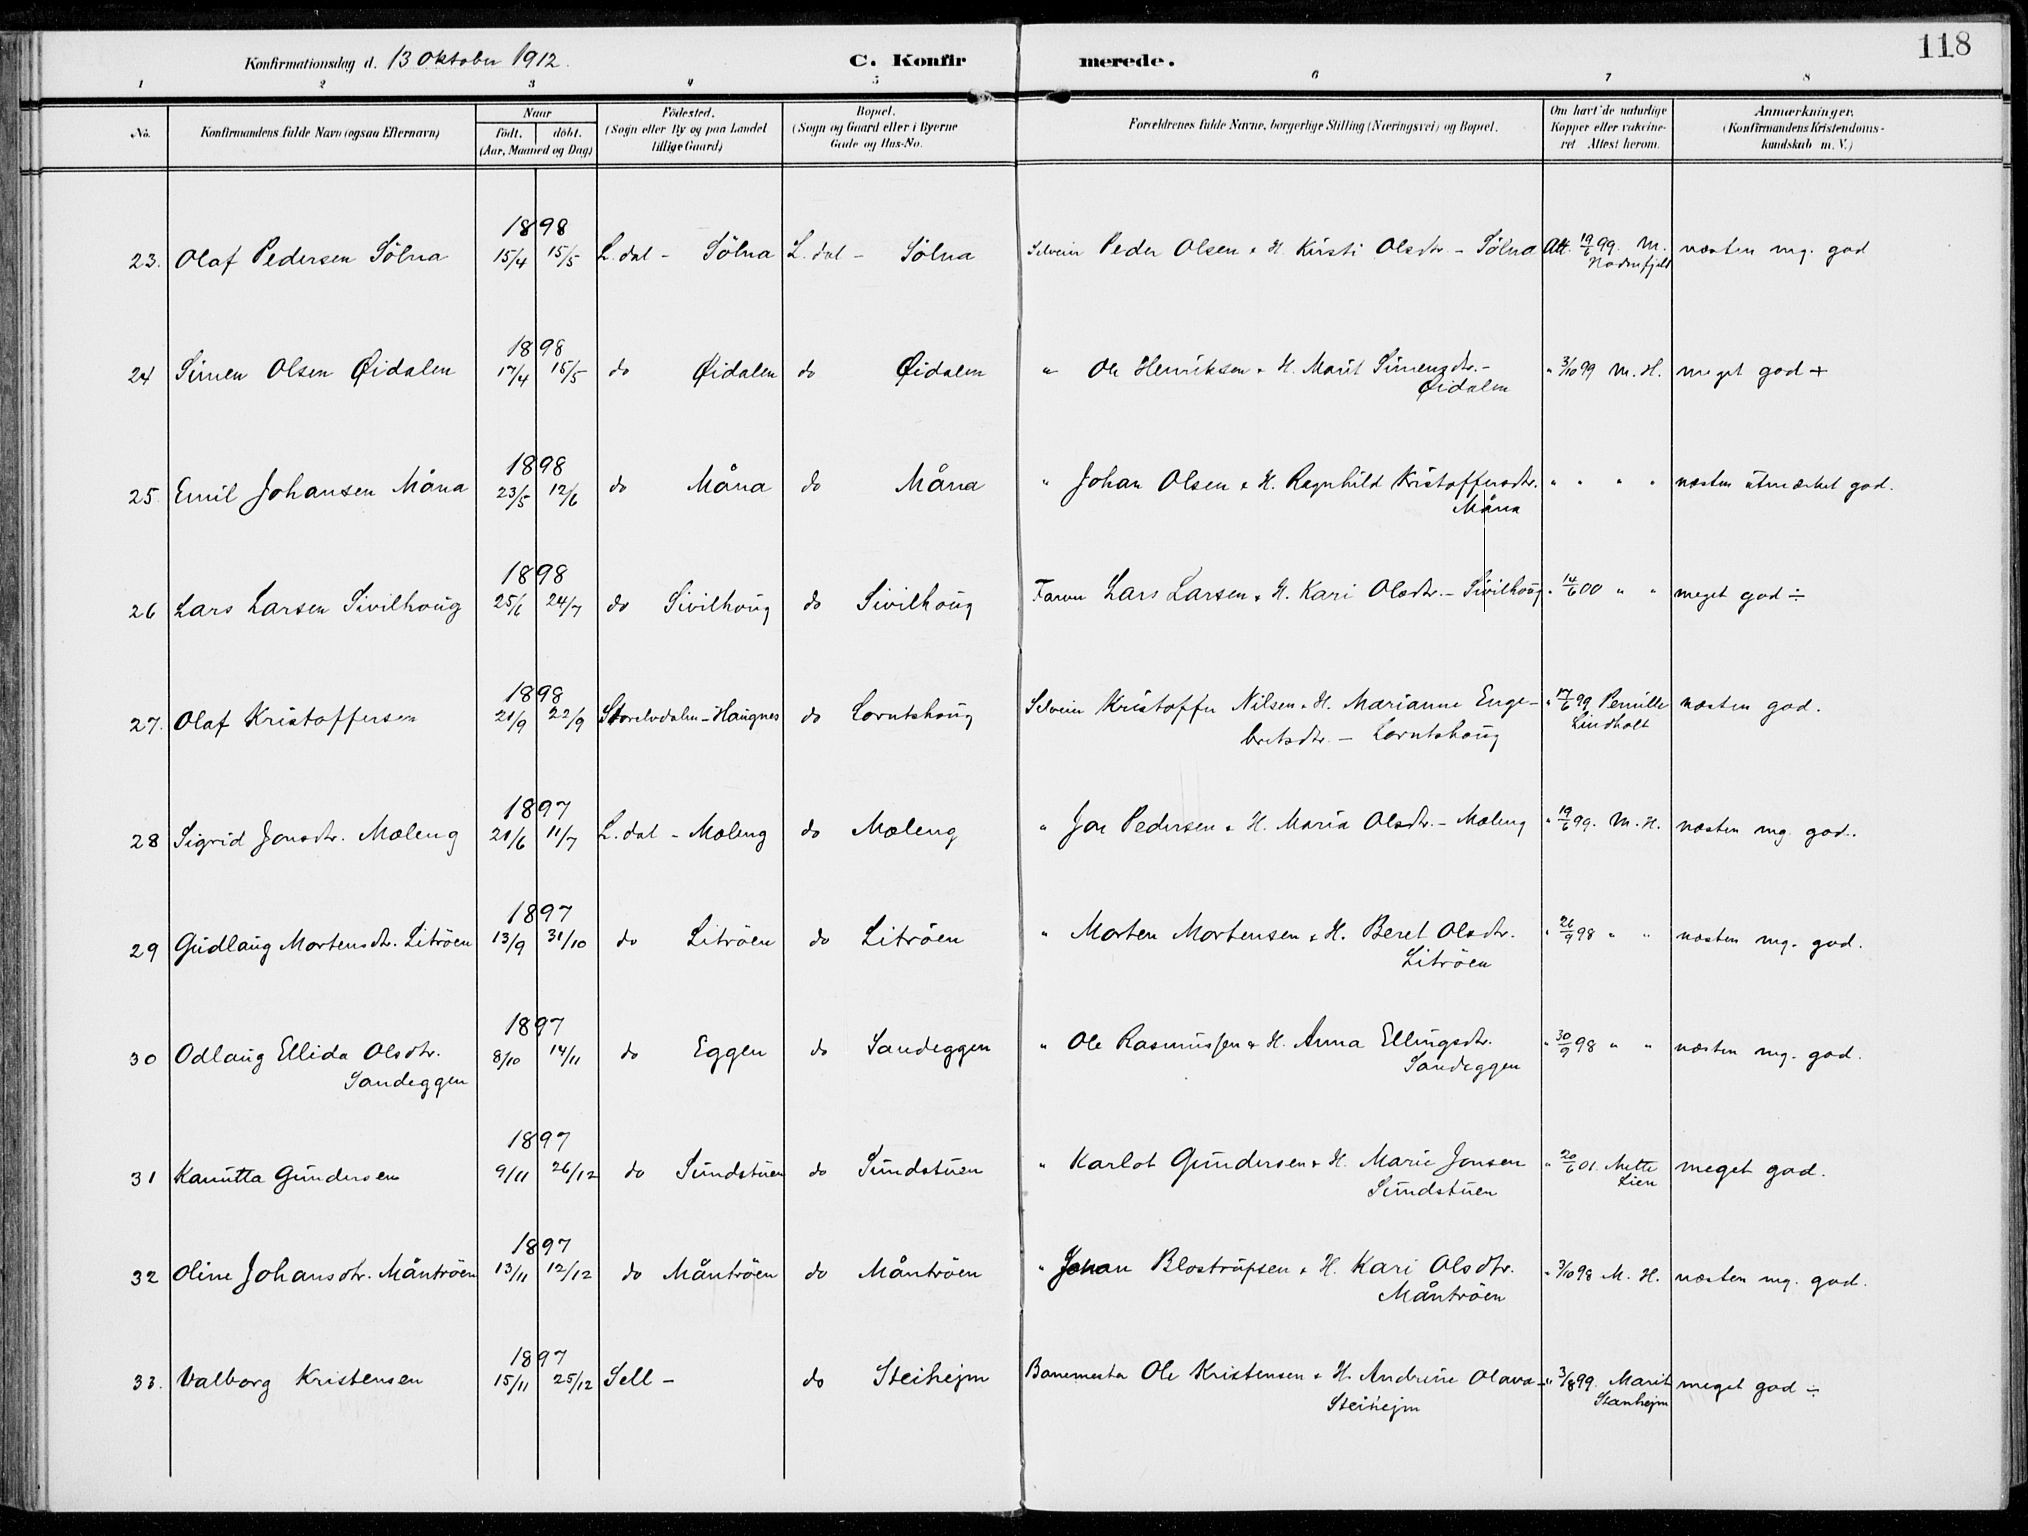 Konfirmationsdag d. 13 Oktober 1912. C. Konfirmerede. 118
1 2 3 4 5 6 7 8
No. Konfirmandens fulde Navn (ogsaa Efternavn) Naar födt. döbt. (Aar, Maaned og Dag) Födested. (Sogn eller By og paa Landet tillige Gaard) Bopæl. (Sogn og Gaard eller i Byerne Gade og Hus-No. Forældrenes fulde Navne, borgerlige Stilling (Næringsvei) og Bopæl. Om havt de naturlige Kopper eller vakcineret Attest herom. Anmærkninger. (Konfirmandens Kristendomskundskab m. V.)
1898
23. Olaf Pedersen Sölna 15/4 15/5 L.dal - Sölna L.dal - Sölna Selveier Peder Olsen & H. Kirsti Olsdtr. - Sölna Att. 19/6 99. M. næsten mg. god
Nordufjeld
1898
24 Simen Olsen Øidalen 17/4 15/5 do Øidalen do Øidalen " Ole Henriksen & H. Marit Simensdtr. - " 3/10 99 M. H. meget god +
Øidalen
1898
25. Emil Johansen Måna 23/5 12/6 do Måna do Måna " Johan Olsen & H. Ragnhild Kristoffersdtr. " " " " næsten utmærket god.
Måna
1898
26 Lars Larsen Sivilhoug 25/6 24/7 do Sivilhoug do Sivilhoug Farver Lars Larsen & H. Kari Olsdtr. - Sivilhoug " 14/6 00 " " meget god ÷
1898
27. Olaf Kristoffersen 21/9 22/9 Storelvdalen - Haugnes do Lorntshoug Selveier Kristoffer Nilsen & H. Marianne Enge- " 17/6 99 Pernille næsten god.
bretsdtr. - Lorntshoug Lindholt
1897
28 Sigrid Jonsdtr. Mæleng 21/6 11/7 L.dal - Mæleng do Mæleng " Jon Pedersen & H. Maria Olsdtr. - Mæleng " 19/6 99. M. H. næsten mg. god.
1897
29 Gudlaug Mortensdtr. Litröen 13/9 31/10 do Litröen do Litröen " Morten Mortensen & H. Beret Olsdtr. " 26/9 98 " " næsten mg. god.
Litröen
1897
30 Odlaug Ellida Olsdtr. 8/10 14/11 do Eggen do Sandeggen " Ole Rasmussen & H. Anna Ellingsdtr. " 30/9 98 " " næsten mg. god.
Sandeggen Sandeggen
1897
31 Kanutta Gundersen 9/11 26/12 do Sundstuen do Sundstuen " Karlot Gundersen & H. Marie Jonsen " 20/6 01. Mette meget god.
Sundstuen Lien
1897
32 Oline Johansdtr. Måntröen 13/11 12/12 do Måntröen do Måntröen " Johan Blostrupsen & H. Kari Olsdtr. " 3/10 98 M. H. næsten mg. god.
Måntröen
1897
33. Valborg Kristensen 15/11 25/12 Sell - do Steihejm Banemester Ole Kristensen & H. Andrine Olava - " 3/8 99. Marit meget god ÷
Steihejm Stenhejm